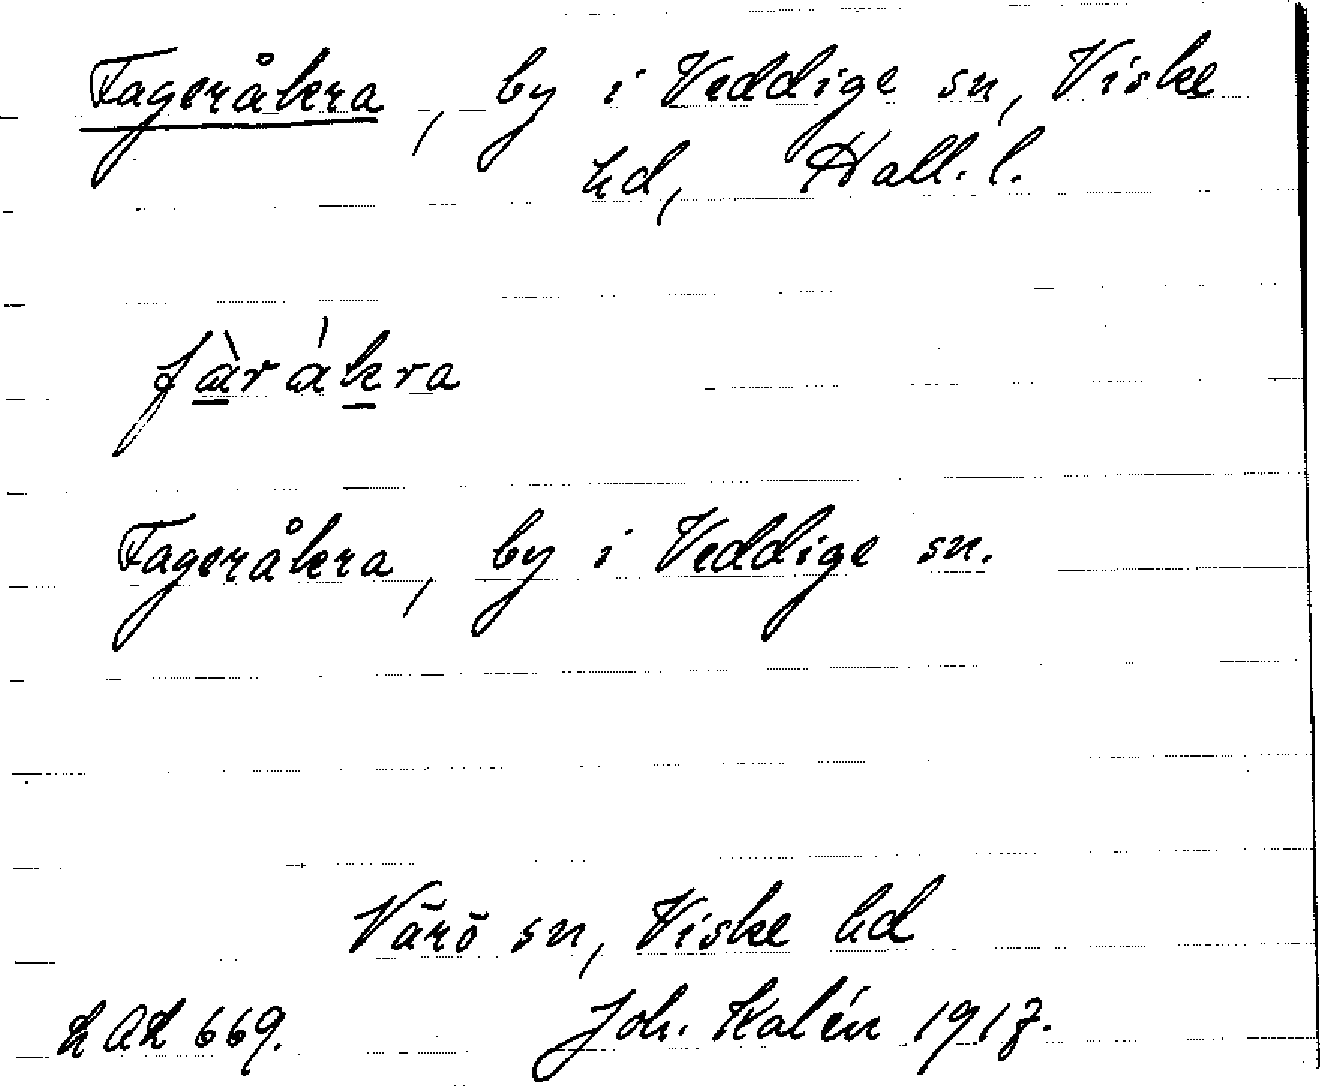 Fageråkra, by i Veddige sn, Viske
hd, Hall. l.
fàrákra
Fageråkra, by i Veddige sn.
Värö sn, Viske hd
Joh. Kalén 1917.